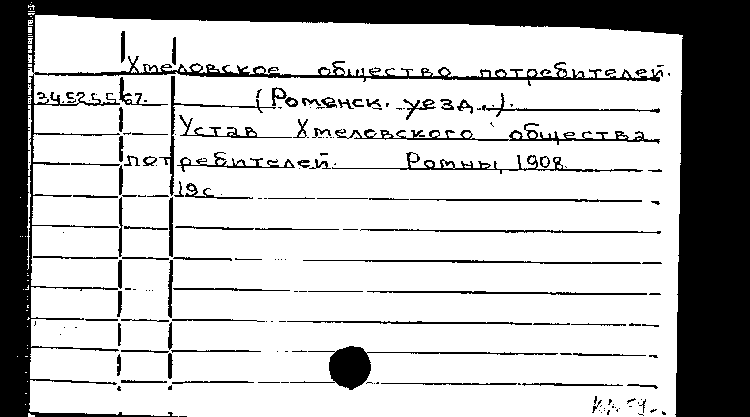 Хмеловское общество потребителей.
34.5255.67. (Роменск. уезд.).
Устав Хмеловского общества
потребителей. Ромны, 1908
19с